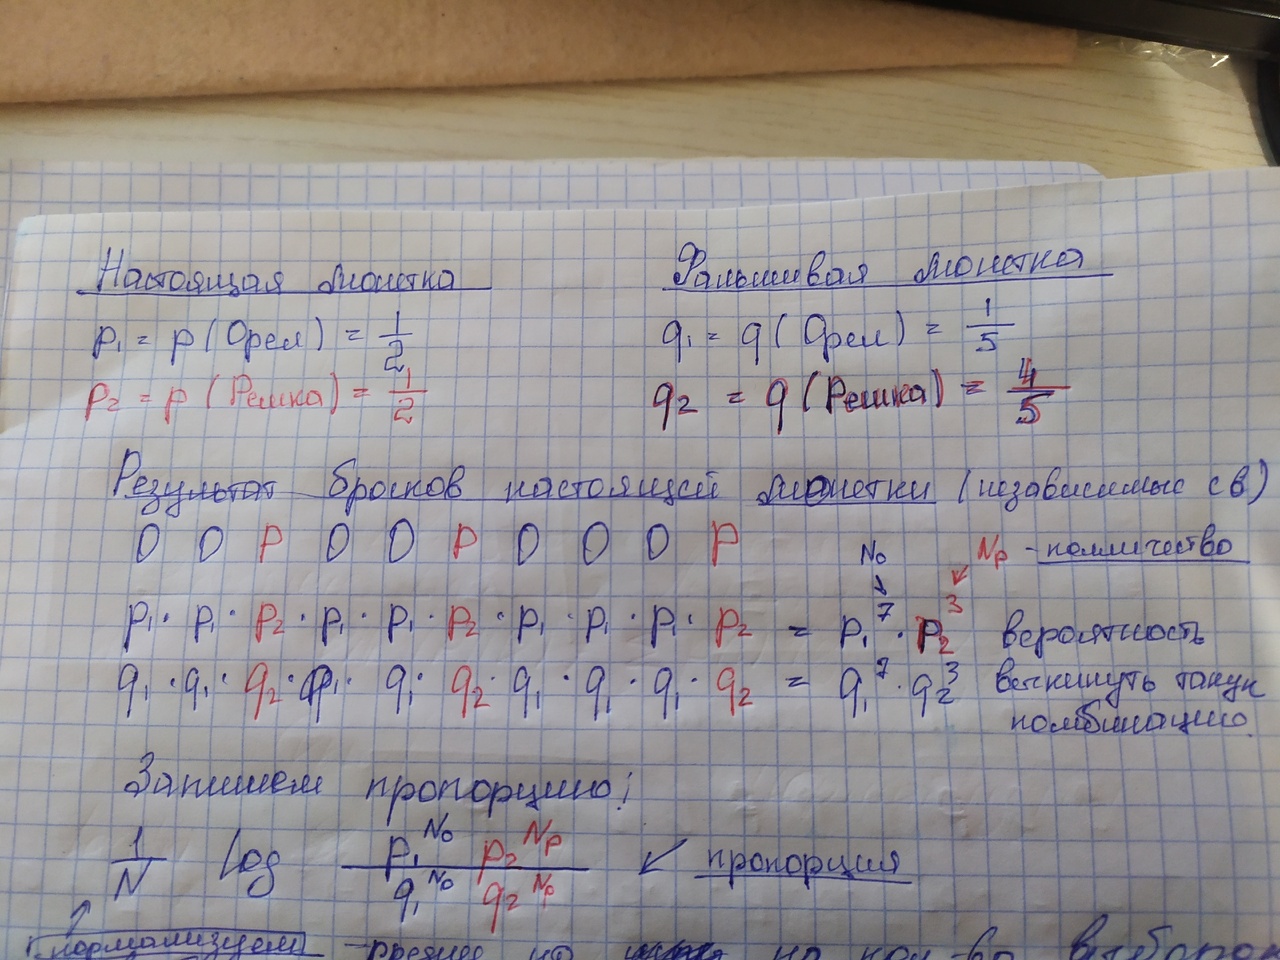 Настоящая монетка
Фальшивая монетка
p₁ = p (Орел) = 1/2
q₁ = q (Орел) = 1/5
p₂ = p (Решка) = 1/2
q₂ = q (Решка) = 4/5
Результат бросков настоящей монетки (независимые св)
О О Р О О Р О О О Р
Nо
Nр - колличество
p₁ · p₁ · p₂ · p₁ · p₁ · p₂ · p₁ · p₁ · p₁ · p₂ = p₁⁷ · p₂³ вероятность
q₁ · q₁ · q₂ · q₁ · q₁ · q₂ · q₁ · q₁ · q₁ · q₂ = q₁⁷ · q₂³ выкинуть такую
комбинацию.
Запишем пропорцию:
1/N log p₁^Nо p₂^Nр / q₁^Nо q₂^Nр ↙ пропорция
нормализуем - на на кол-во